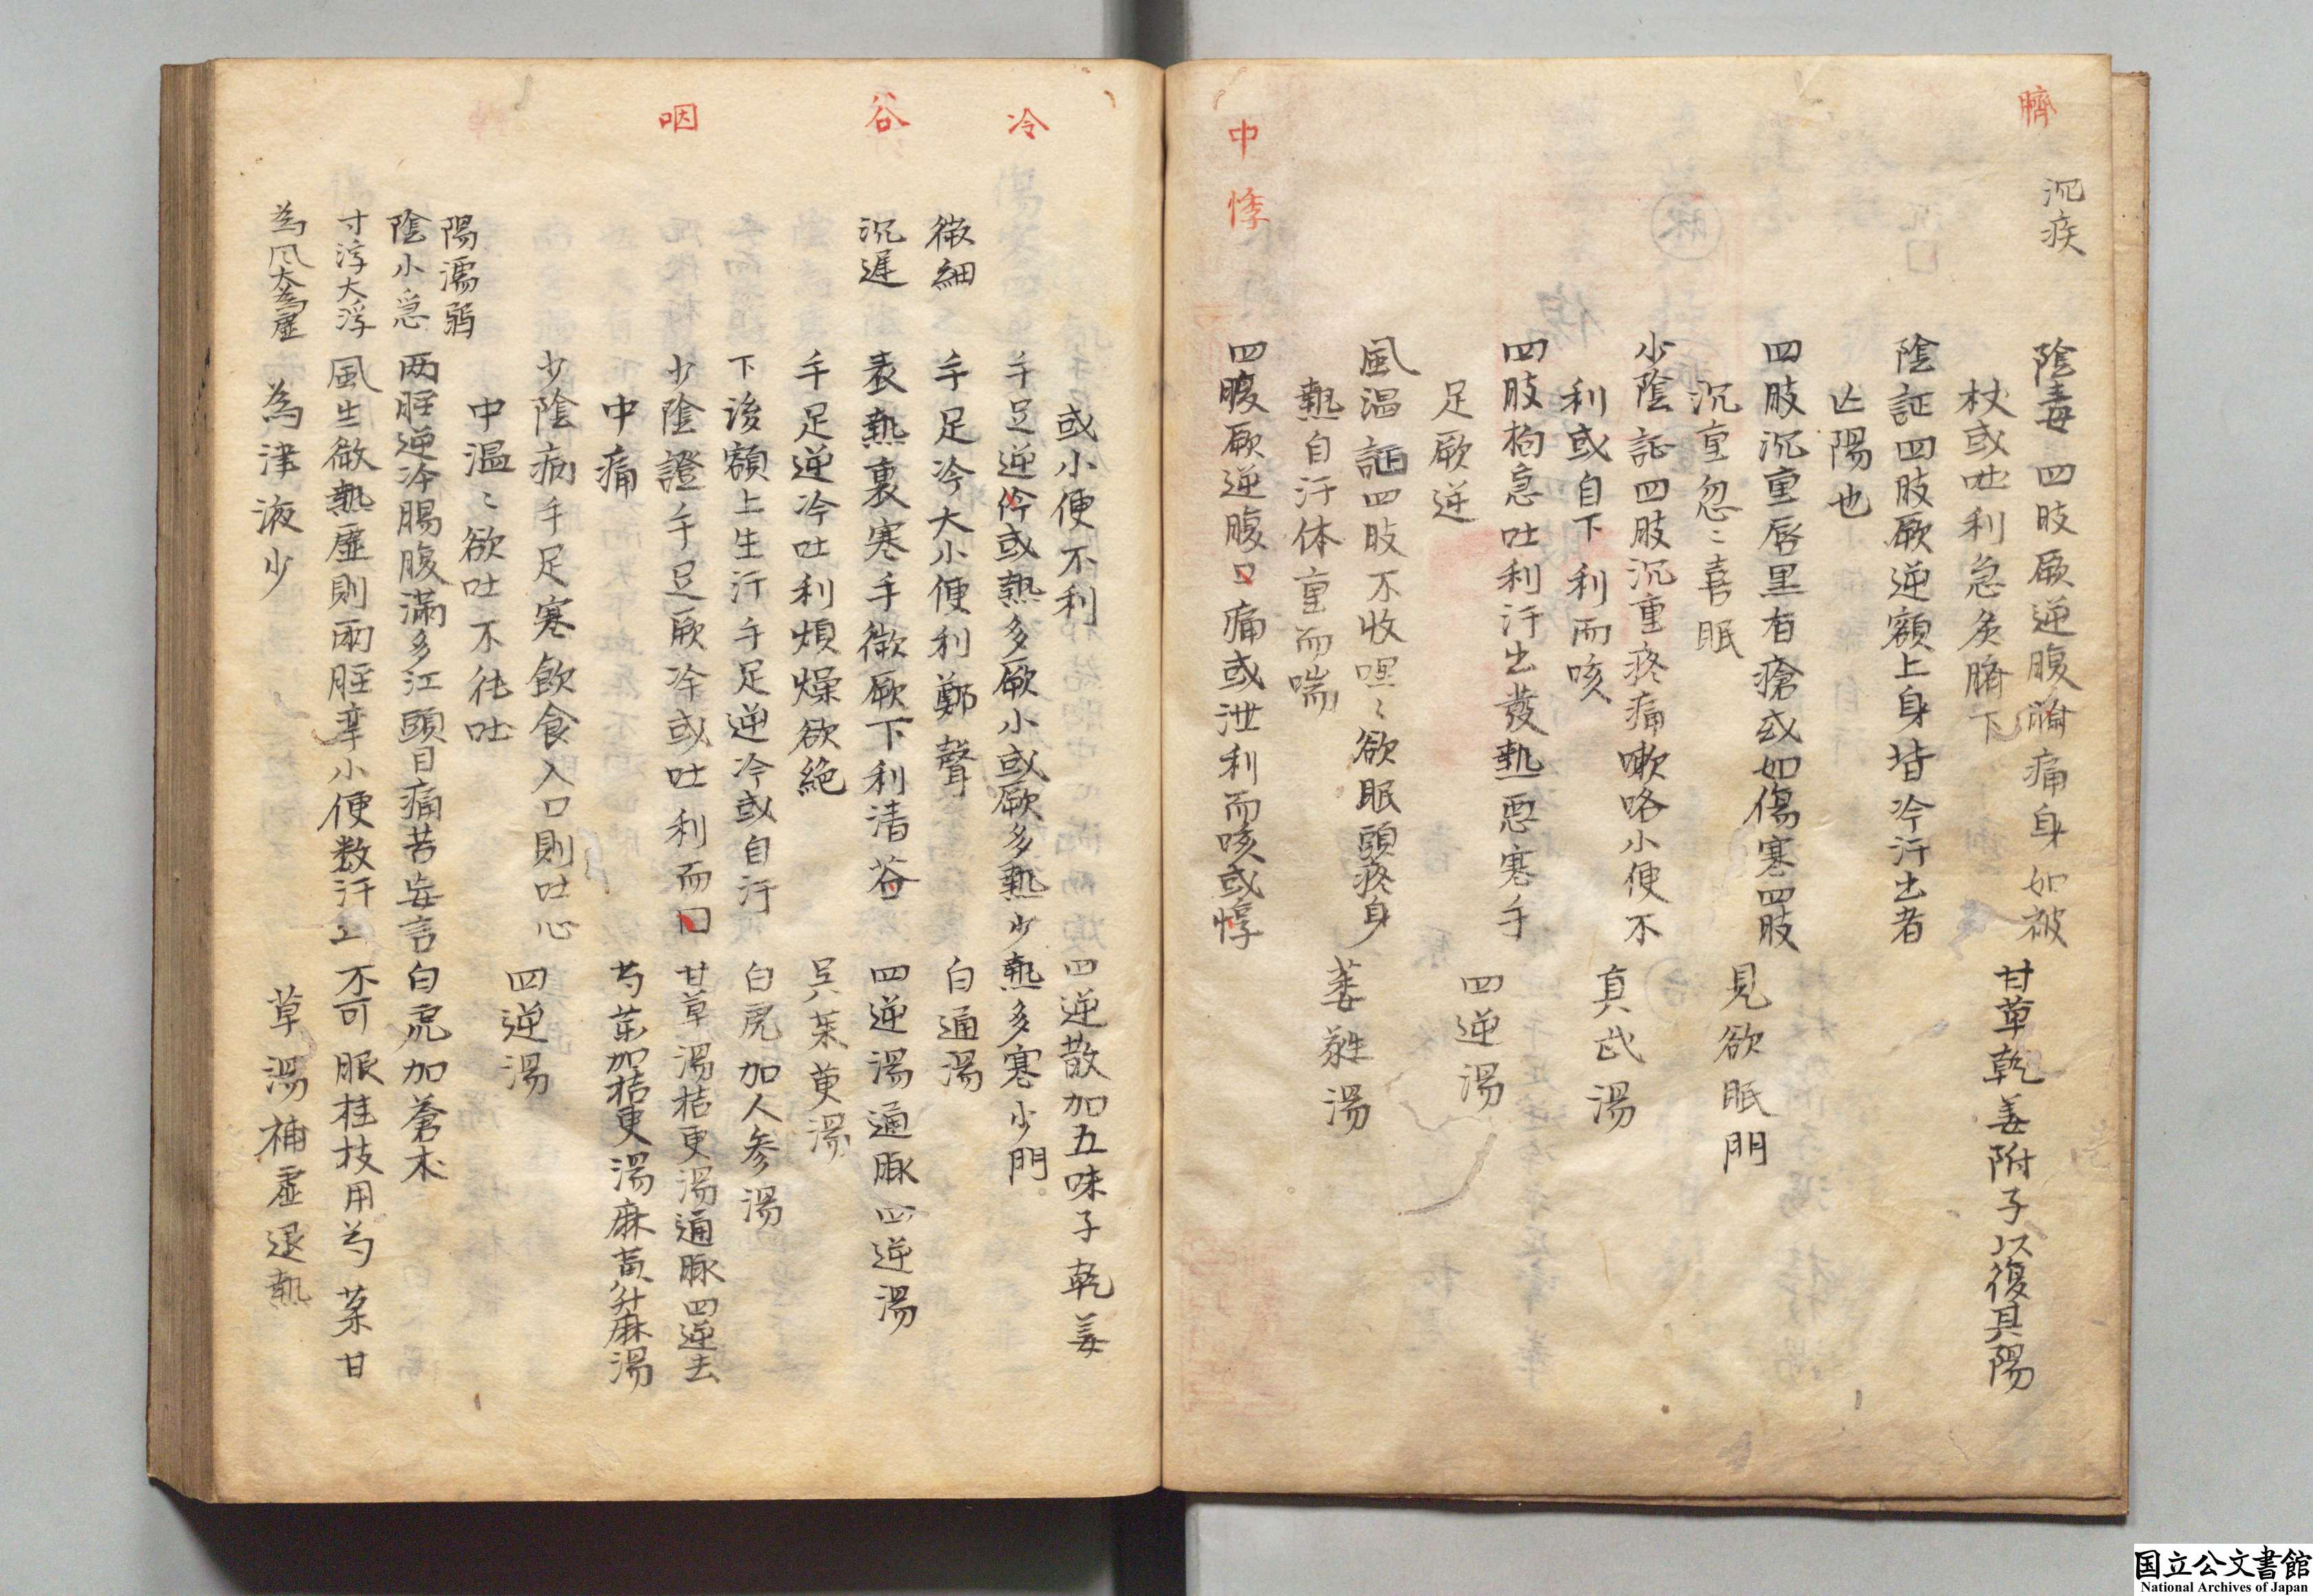 臍
沉疾
陰毒四肢厥逆腹臍痛身如被
杖或吐利急灸臍下
甘草乾姜附子以復其陽
陰証四肢厥逆額上身背冷汗出者
亡陽也
四肢沉重唇黒有瘡或如傷寒四肢
沉重忽〻喜眠
見欲眠門
少陰証四肢沉重疼痛嗽咯小便不
利或自下利而咳
真武湯
四肢拘急吐利汗出發熱悪寒手
足厥逆
四逆湯
風温証四肢不收嘿〻欲眠頭疼身
熱自汗体重而喘
萎蕤湯
中
悸
四腹厥逆腹口痛或泄利而咳或悸
或小便不利
四逆散加五味子乾姜
冷
手足逆冷或熱多厥小或厥多熱少熱多寒少門
微細
手足冷大小便利鄭聲
白通湯
谷
沉遅
表熱裏寒手微厥下利清谷
四逆湯通脉四逆湯
手足逆冷吐利煩燥欲絶
呉茱萸湯
下後額上生汗手足逆冷或自汗
白虎加人参湯
咽
少陰證手足厥冷或吐利而口
中痛
甘草湯桔更湯通脉四逆去
芍薬加桔更湯麻黄升麻湯
少陰病手足寒飲食入口則吐心
中温〻欲吐不能吐
四逆湯
陽濡弱
陰小急
両脛逆冷腸腹満多江頭目痛苦妄言
白虎加蒼朮
寸浮大浮
為風大為虚
風生微熱虚則両脛挛小便数汗出不可服桂枝用芍薬甘
為津液少
草湯補虚退熱
国立公文書館
National Archives of Japan